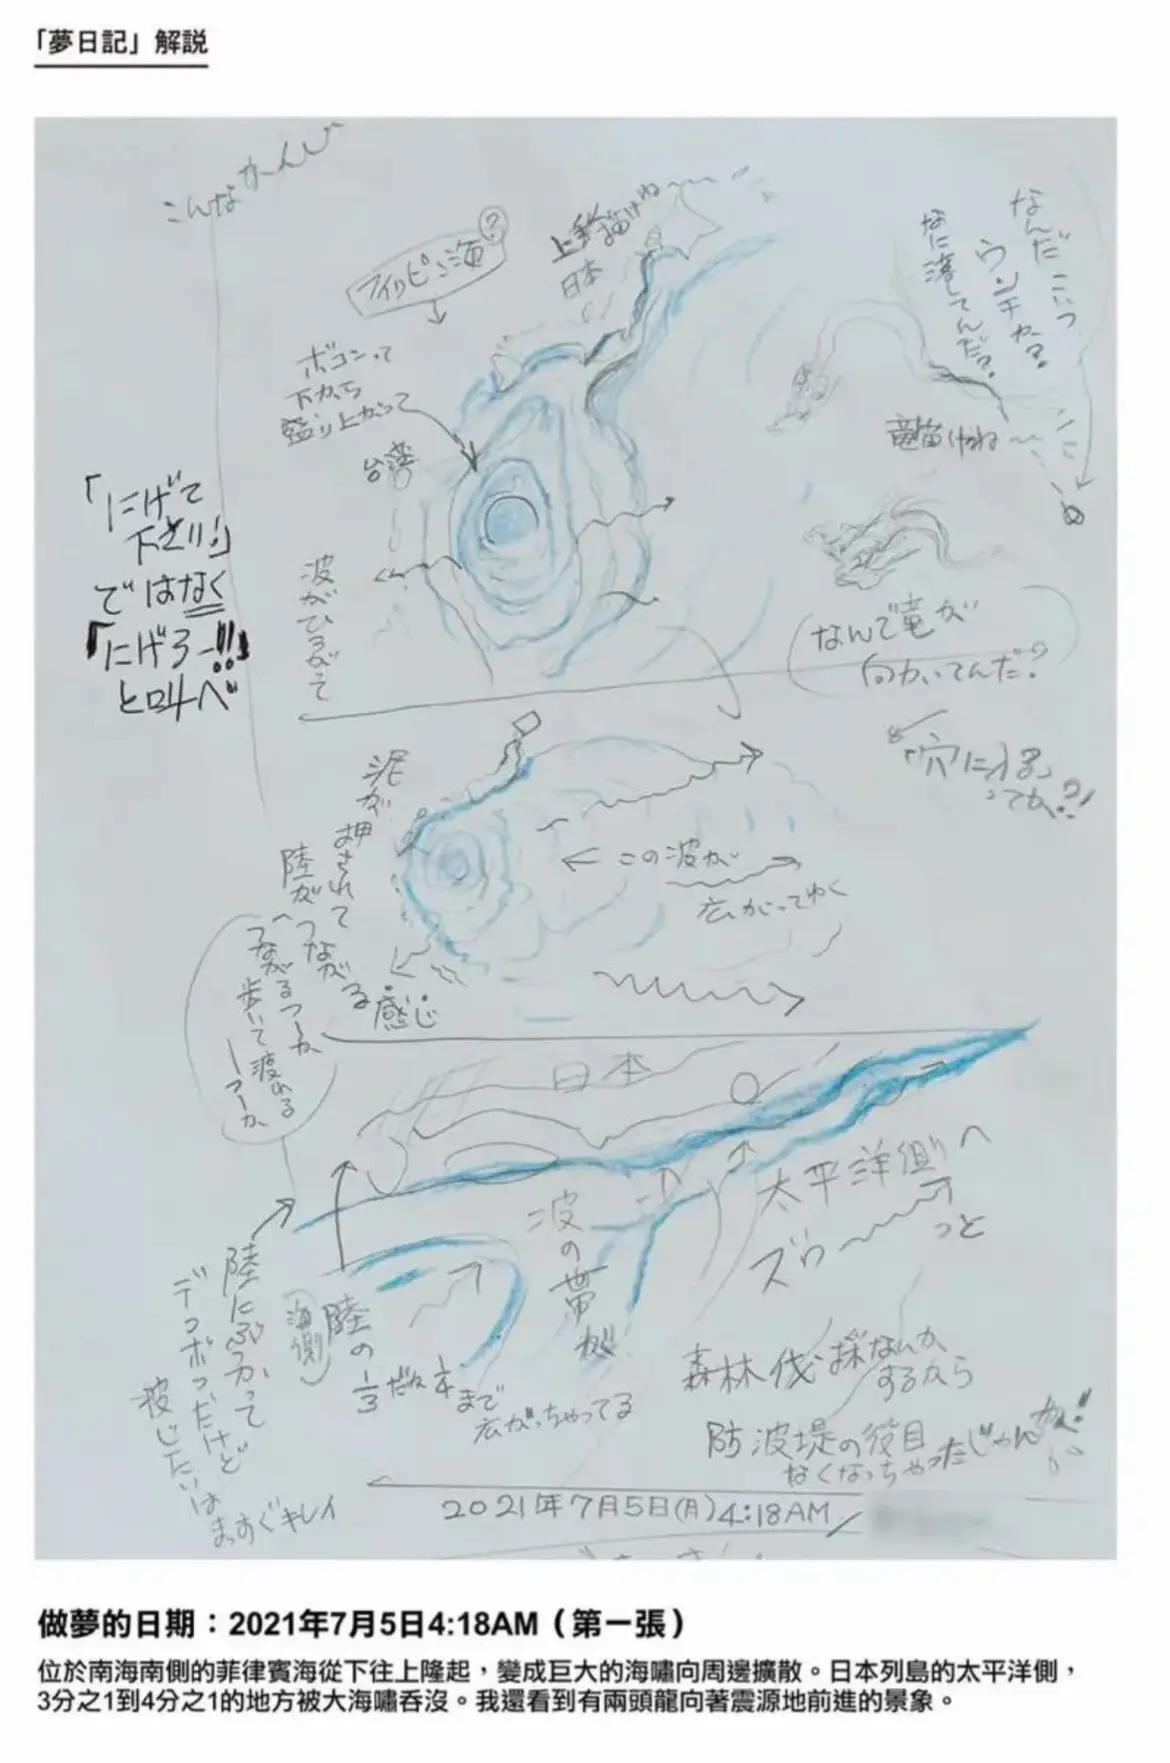 「夢日記」解説
こんなかんじ
フィリピン海?
上手く描けね
日本
なんだこいつ
ウンチか?
なに落してんだ?
ボコンって
下から
盛り上がって
台湾
竜描けね
「にげて
下さい!」
ではなく
「にげろー!!」
と叫べ
波がひろがって
なんで竜が
向かってんだ?
「穴に入る」
ってか?!
泥が押されて
陸がつながる
感じ
つながるつーか
歩いて渡れる
つーか
この波が
広がってゆく
日本
太平洋側へ
ズゥーっと
波の帯が
陸にぶつかって
デコボコだけど
波じたいは
まっすぐキレイ
(海側)
陸の
1/3だね 1/4まで
広がっちゃってる
森林伐採なんか
するから
防波堤の役目
なくなっちゃったじゃんか!
2021年7月5日(月)4:18AM
做夢的日期：2021年7月5日4:18AM（第一張）
位於南海南側的菲律賓海從下往上隆起，變成巨大的海嘯向周邊擴散。日本列島的太平洋側，
3分之1到4分之1的地方被大海嘯吞沒。我還看到有兩頭龍向著震源地前進的景象。